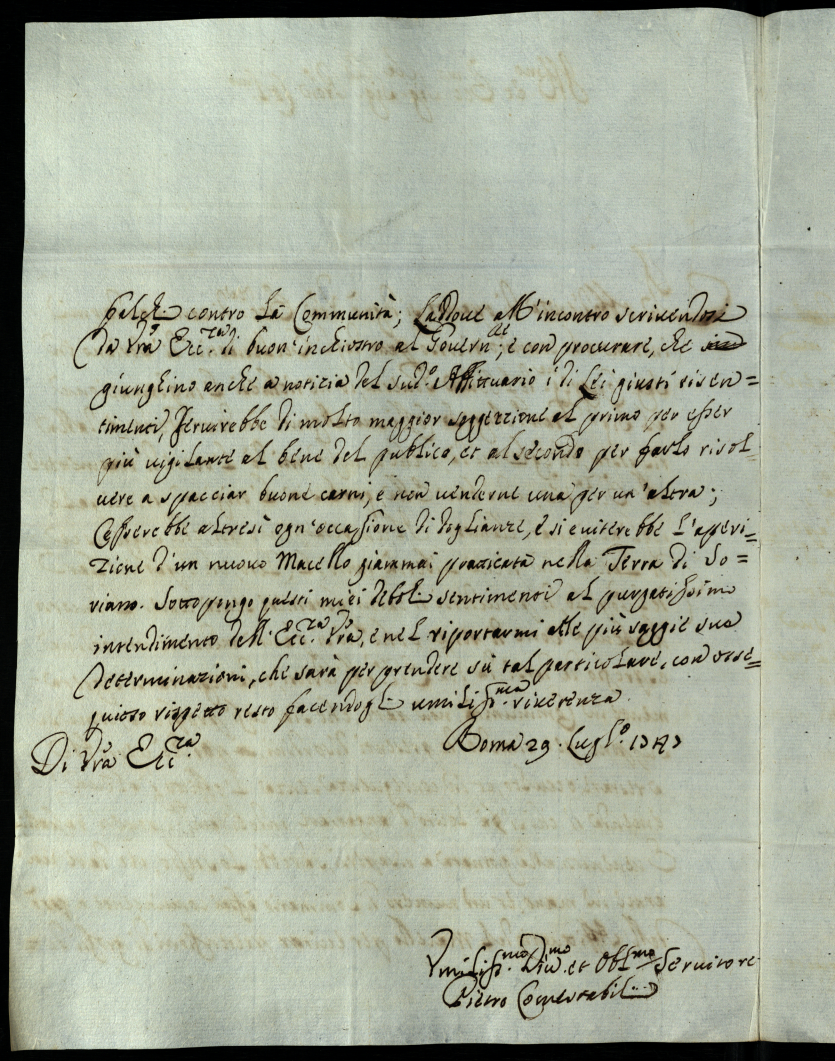 contro la Communità; laddove all'incontro scrivendosi
da Vra Ecc.za di buon'inchiostro al Govern.e; e con procurare, che
giunghino anche a notizia del sud.o Affittuario i di Lei giusti risen=
timenti, servirebbe di molto maggior soggezzione al primo per esser
più vigilante al bene del publico, et al secondo per farlo risol=
vere a spacciar buone carni, e non venderne una per un'altra;
Cesserebbe altresì ogn'occassione di doglianze, e si eviterebbe l'aperi=
zione d'un nuovo Macello giammai pratticata nella Terra di So=
riano. Sottopongo questi miei deboli sentimenti al purgatissimo
intendimento dell'Ecc.za Vra, e nel riportarmi alle più saggie sue
determinazioni, che sarà per prendere sù tal particolare, con osse=
quioso rispetto resto facendogli umiliss.ma riverenza
Di Vra Ecc.za
Roma 29. Lugl.o
Umiliss.mo Div.mo et Obl.mo Servitore
Pietro Connestabili